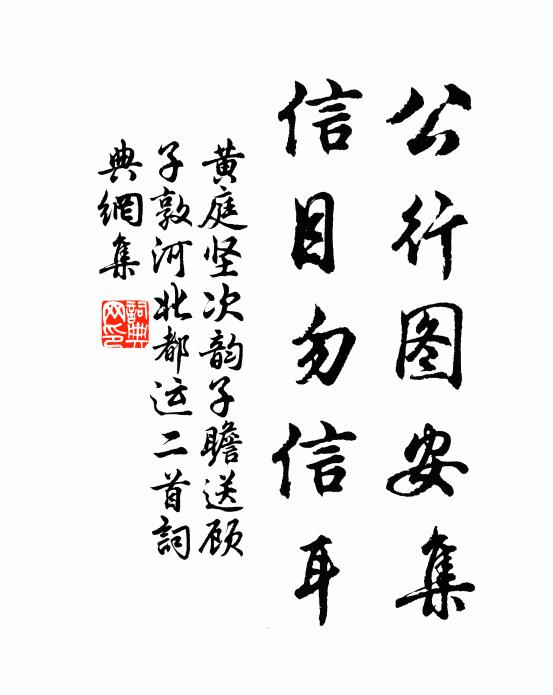 公行图安集
信目勿信耳
黄庭坚次韵子瞻送顾
子敦河北都运二首詞
典網集
詞典
网印